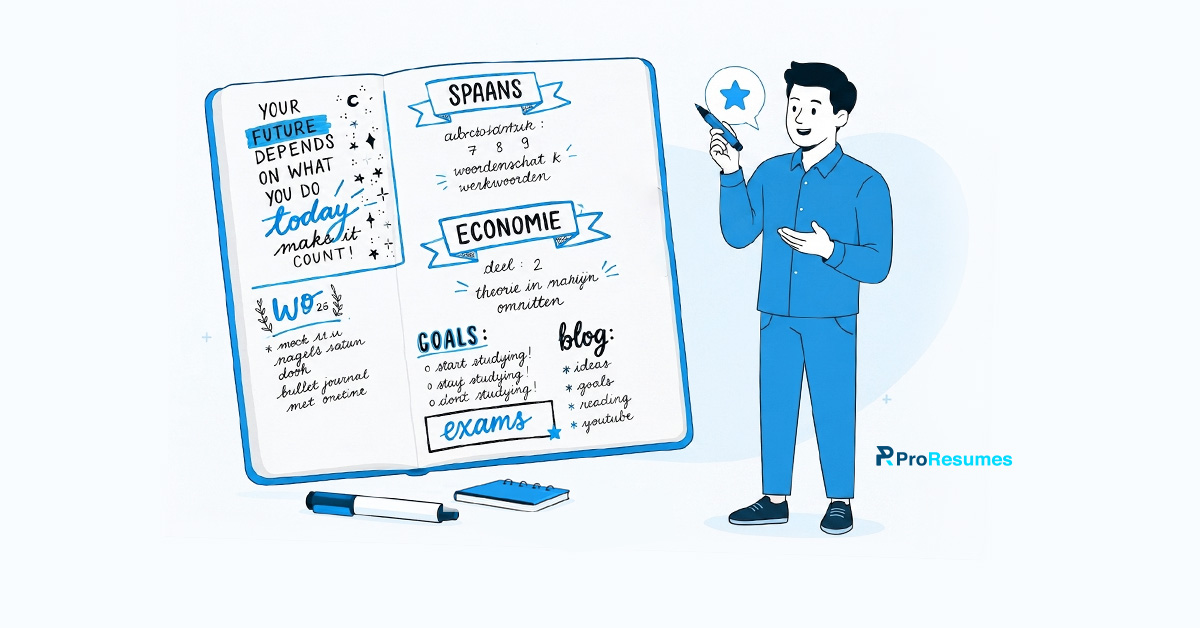 YOUR
FUTURE
DEPENDS
ON WHAT
YOU DO
today
make it
COUNT!
WO 25
* mock
nagels
bullet journal
met
SPAANS
7 8 9
woordenschat k
werkwoorden
ECONOMIE
deel : 2
theorie in
GOALS:
o start studying!
o stay studying!
o dont studying!
exams
blog:
* ideas
* goals
* reading
* youtube
ProResumes